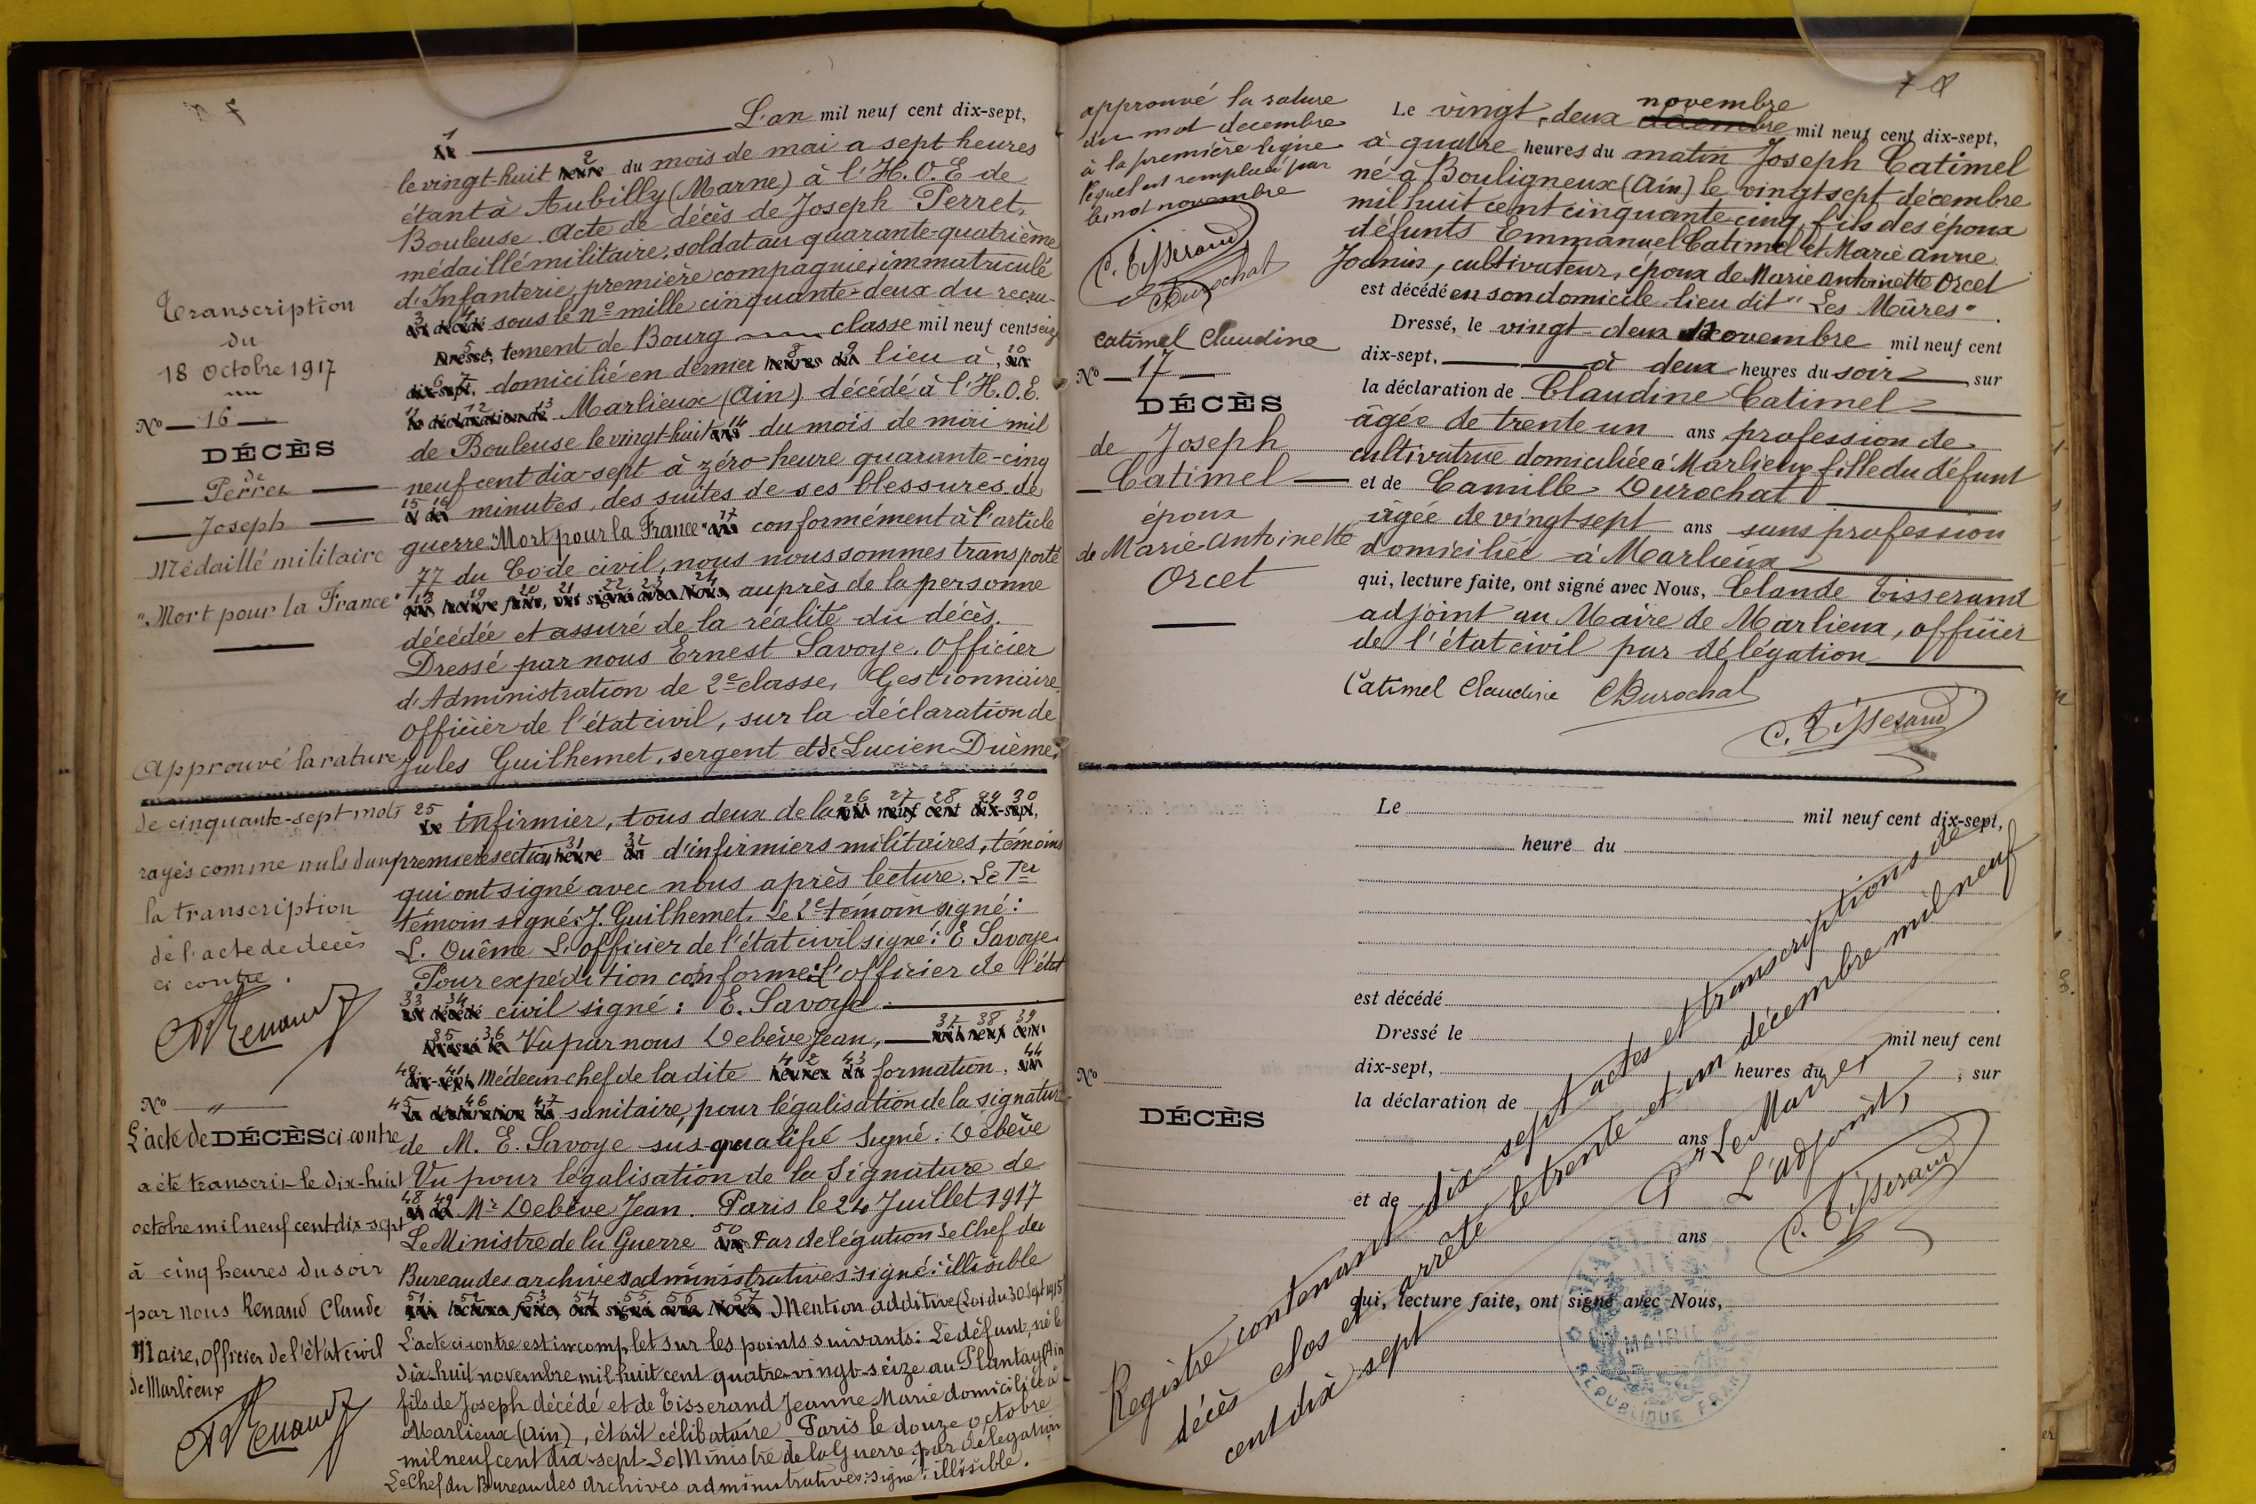 7
L'an mil neuf cent dix-sept,
1
le vingt-huit 2 du mois de mai a sept heures
étant à Aubilly (Marne) à l'H.O.E de
Bouleuse Acte de décès de Joseph Perret,
médaillé militaire, soldat au quarante-quatrième
d'Infanterie, première compagnie, immatriculé
3 4 sous le no mille cinquante-deux du recru-
5 tement de Bourg classe mil neuf cent seize
6 7 domicilié en dernier 8 9 lieu à 10
11 12 13 Marlieux (Ain) décédé à l'H.O.E.
de Bouleuse le vingt-huit 14 du mois de mai mil
neuf cent dix-sept à zéro heure quarante-cinq
15 16 minutes, des suites de ses blessures de
guerre "Mort pour la France" 17 conformément à l'article
77 du Code civil, nous nous sommes transporté
18 19 20 21 22 23 24 auprès de la personne
décédée et assuré de la réalité du décès.
Dressé par nous Ernest Savoye, Officier
d'Administration de 2e classe, Gestionnaire,
Officier de l'état civil, sur la déclaration de
Jules Guilhemet, sergent et de Lucien Duème,
Transcription
du
18 Octobre 1917
No 16
DÉCÈS
de
Perret
Joseph
Médaillé militaire
"Mort pour la France"
Approuvé la rature
de cinquante-sept mots
rayés comme nuls dans
la transcription
de l'acte de décès
ci contre.
25 infirmier, tous deux de la 26 27 28 29 30
première section 31 32 d'infirmiers militaires, témoins
qui ont signé avec nous après lecture. Le 1er
témoin signé: J. Guilhemet. Le 2e témoin signé:
L. Ouème L'officier de l'état civil signé: E Savoye.
Pour expédition conforme: l'officier de l'état
33 34 civil signé: E. Savoye
35 36 Vu par nous Debève Jean, 37 38 39
40 41 Médecin chef de la dite 42 43 formation, 44
45 46 47 sanitaire, pour légalisation de la signature
de M. E. Savoye sus-qualifié Signé: Debève
Vu pour légalisation de la Signature de
48 49 Mr Debève Jean. Paris le 24 Juillet 1917
Le Ministre de la Guerre 50 Par délégation Le Chef du
Bureau des archives administratives signé: illisible
51 52 53 54 55 56 57 Mention additive (Loi du 30 Sept 1915)
L'acte ci contre est incomplet sur les points suivants: Le défunt, né le
dix-huit novembre mil huit cent quatre-vingt-seize au Plantay (Ain
fils de Joseph décédé et de Tisserand Jeanne Marie domiciliée à
Marlieux (Ain), était célibataire Paris le douze octobre
mil neuf cent dix-sept Le Ministre de la Guerre par délégation
Le Chef du Bureau des archives administratives: signé: illisible.
Renaud
No "
L'acte de DÉCÈS ci contre
a été transcrit le dix-huit
octobre mil neuf cent dix-sept
à cinq heures du soir
par nous Renaud Claude
Maire, officier de l'état civil
de Marlieux
Renaud
approuvé la rature
du mot decembre
à la première ligne
lequel est remplacé par
le mot novembre
C. Tisserand
C Durochat
Catimel Claudine
No 17
DÉCÈS
de Joseph
Catimel
époux
de Marie Antoinette
Orcet
7
Le vingt-deux decembre novembre mil neuf cent dix-sept,
à quatre heures du matin Joseph Catimel
né à Bouligneux (Ain) le vingt sept décembre
mil huit cent cinquante cinq, fils des époux
défunts Emmanuel Catimel et Marie Anne
Joanin, cultivateur, époux de Marie Antoinette Orcet
est décédé en son domicile lieu dit "Les Mûres".
Dressé, le vingt-deux novembre mil neuf cent
dix-sept, à deux heures du soir, sur
la déclaration de Claudine Catimel
âgée de trente un ans profession de
cultivatrice domiciliée à Marlieux fille du défunt
et de Camille Durochat
âgée de vingt sept ans sans profession
domiciliée à Marlieux
qui, lecture faite, ont signé avec Nous, Claude Tisserand
adjoint au Maire de Marlieux, officier
de l'état civil par délégation
Catimel Claudine C Durochat
C. Tisserand
Le mil neuf cent dix-sept,
heure du
est décédé
Dressé le mil neuf cent
dix-sept, heures du , sur
la déclaration de
ans
et de
ans
qui, lecture faite, ont signé avec Nous,
No
DÉCÈS
Registre contenant dix-sept actes et transcriptions de
décès clos et arrêté le trente-et-un décembre mil neuf
cent dix sept
Pr Le Maire
L'adjoint,
C. Tisserand
MAIRIE
RÉPUBLIQUE FRAN